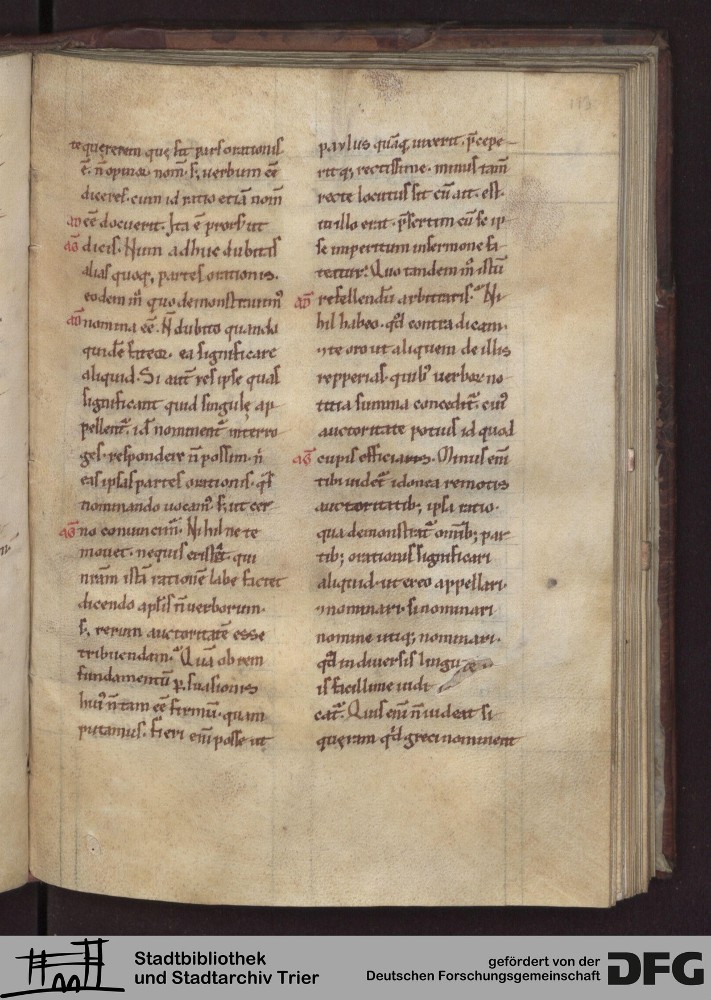 te quererem que sit pars orationis
ē. n̄ opinor nom̄. s; verbum eē
diceres. cum id ratio etiā nom̄
aD eē docuerit. Ita ē prorsus ut
aG dicis. Num adhuc dubitas
alias quoq; partes orationis.
eodem m̄ quo demonstravim᷒
aD nomina eē. N̄ dubito quando
quidē fateor. ea significare
aliquid. Si aut̄ res ipse quas
significant quid singulę ap
pellent᷑. id᷒ nominent᷑ interro
ges. respondere n̄ possim. n̄
eas ipsas partes orationis. q̄s
nominando vocam᷒. s; ut cer
aG no convincim᷑. Nihil ne te
movet. nequis existat qui
nr̄am istā rationē labefactet
dicendo apl̄is n̄ verborum.
s; rerum auctoritatē esse
tribuendam. Quā ob rem
fundamentū p̱suasionis
hui᷒ n̄ tam eē firmū. quam
putamus. fieri enī posse ut
113
paulus quāq; vixerit. p̄cepe
ritq; rectissime. minus tam̄
recte locutus sit cū ait. est
in illo erat. p̄sertim cū se ip
se imperitum in sermone fa
teatur. Quo tandem m̄ istū
aD refellendū arbitraris. Ni
hil habeo. qd̄ contra dicam.
te oro ut aliquem de illis
repperias. quib᷒ verborum no
titia summa concedit᷑. cui᷒
auctoritate potius id quod
aG cupis efficias. Minus enī
tibi videt᷑ idonea remotis
auctoritatib; ipsa ratio.
qua demonstrat᷑ omīb; par
tib; orationis significari
aliquid. ut ex eo appellari.
nominari. si nominari
nomine utiq; nominari.
qd̄ in diversis lingu
is facillime iudi
cat᷑. Quis enī n̄ videat si
queram qd̄ greci nominent
Stadtbibliothek
und Stadtarchiv Trier
gefördert von der
Deutschen Forschungsgemeinschaft
DFG